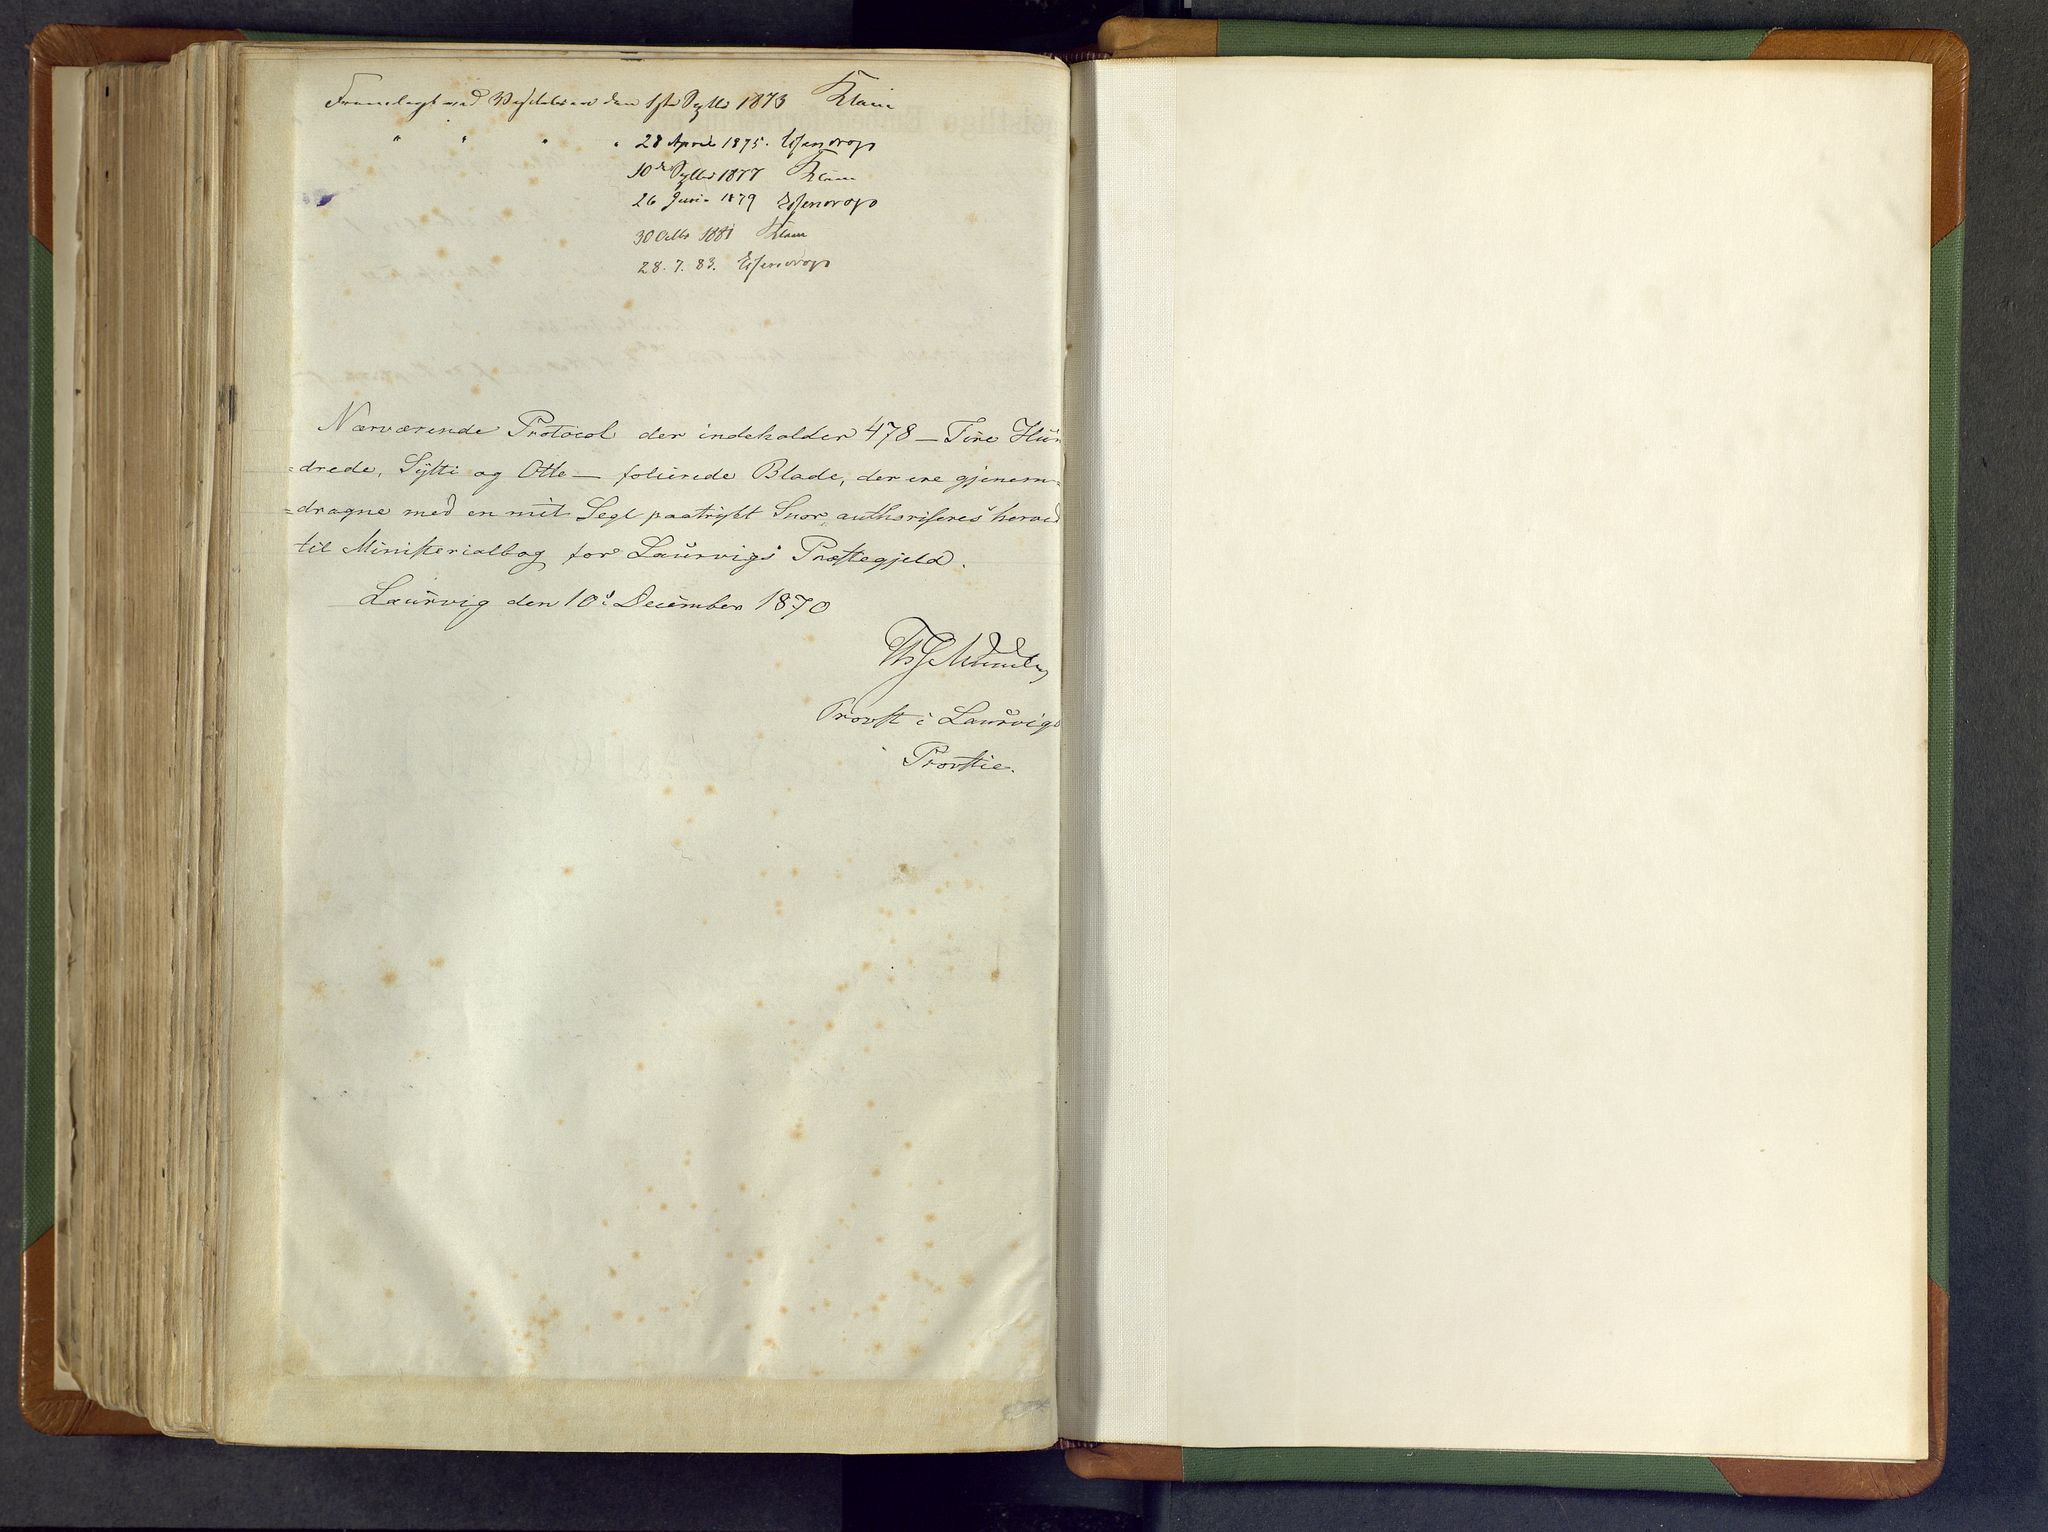 Fremlagt ved Visitatsen den 1ste Juli 1873 Klem
" " " " 28 April 1875. Essendrop
10de Juli 1877 Klem
26 Juni 1879 Essendrop
30 Octbr 1881 Klem
28.7.83. Essendrop
Nærværende Protocol der indeholder 478 — Fire Hun
=drede, Sÿtti og Otte — folierede Blade, der ere gjenem=
=dragne med en mit Segl paatrÿkt Snor, authoriseres herved
til Ministerialbog for Laurvigs Præstegjeld.
Laurvig den 10de December 1870
Provst i Laurvigs
Provstie.